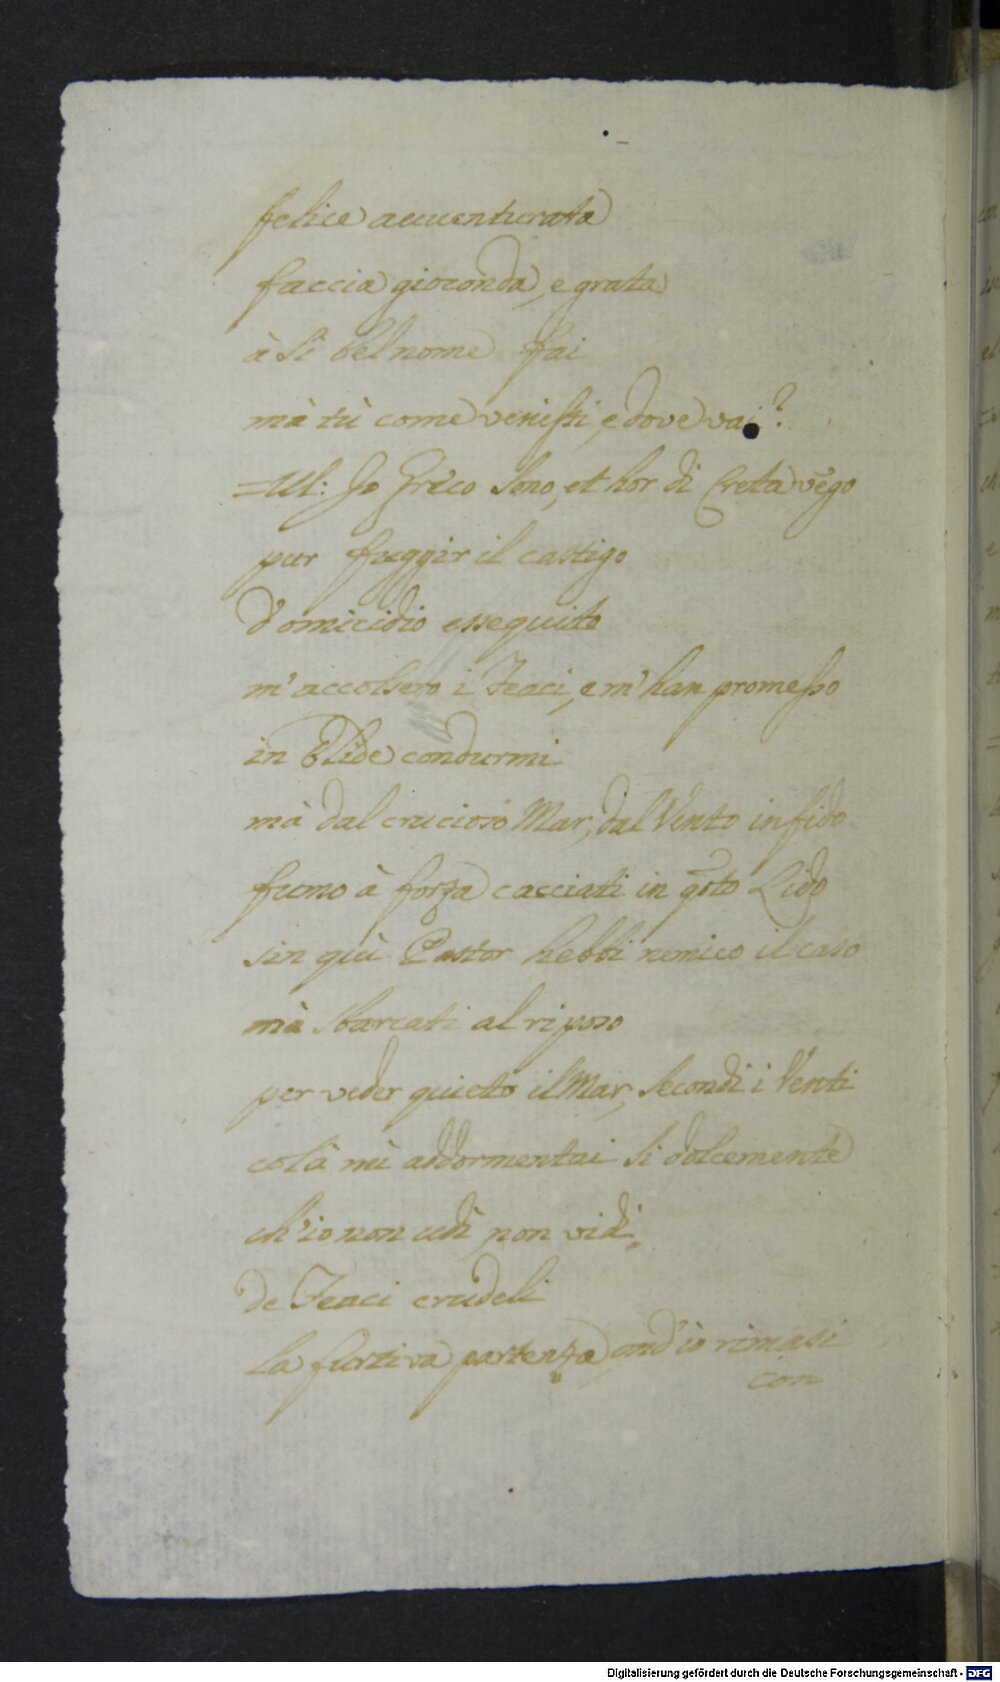 felice auuenturata
faccia gioconda, e grata
à si bel nome fai
mà tù come venisti, e dove vai?
=Ul: Jo Greco sono, et hor di Creta vẽgo
pur fuggir il castigo
d'omicidio essequito
m'accolsero i Feaci, e m'han promesso
in Elide condurmi
mà dal crucioso Mar, dal Vento infido
fumo à forza cacciati in qsto Lido
sin quì Pastor hebbi nemico il caso
mà sbarcati al riposo
per veder quieto il Mar, secondi i Venti
colà mi addormentai si dolcemente
ch'io non udì, non vidi
de Feaci crudeli
la furtiva partenza, ond'io rimasi
con
Digitalisierung gefördert durch die Deutsche Forschungsgemeinschaft - DFG